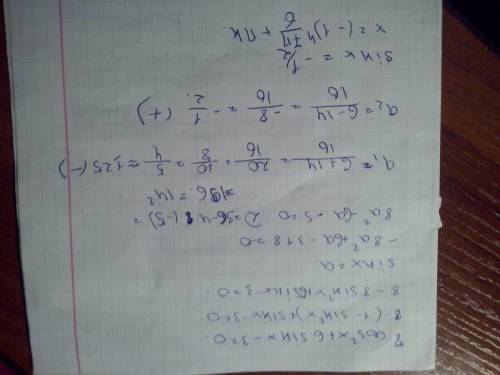 8 cos²x + 6 sinx - 3 = 0.
8·(1 - sin²x) + sinx - 3 = 0
8 - 8 sin²x + 6 sinx - 3 = 0.
sinx = a
-8a² + 6a - 3 + 8 = 0
8a² - 6a - 5 = 0 D = 36 - 4·8·(-5) =
= 196 = 14²
a₁ = 6+14/16 = 20/16 = 10/8 = 5/4 ≈ 1,25 (-)
a₂ = 6-14/16 = -8/16 = -1/2. (+)
sinx = -1/2
x = (-1)ⁿ 7π/6 + πк.